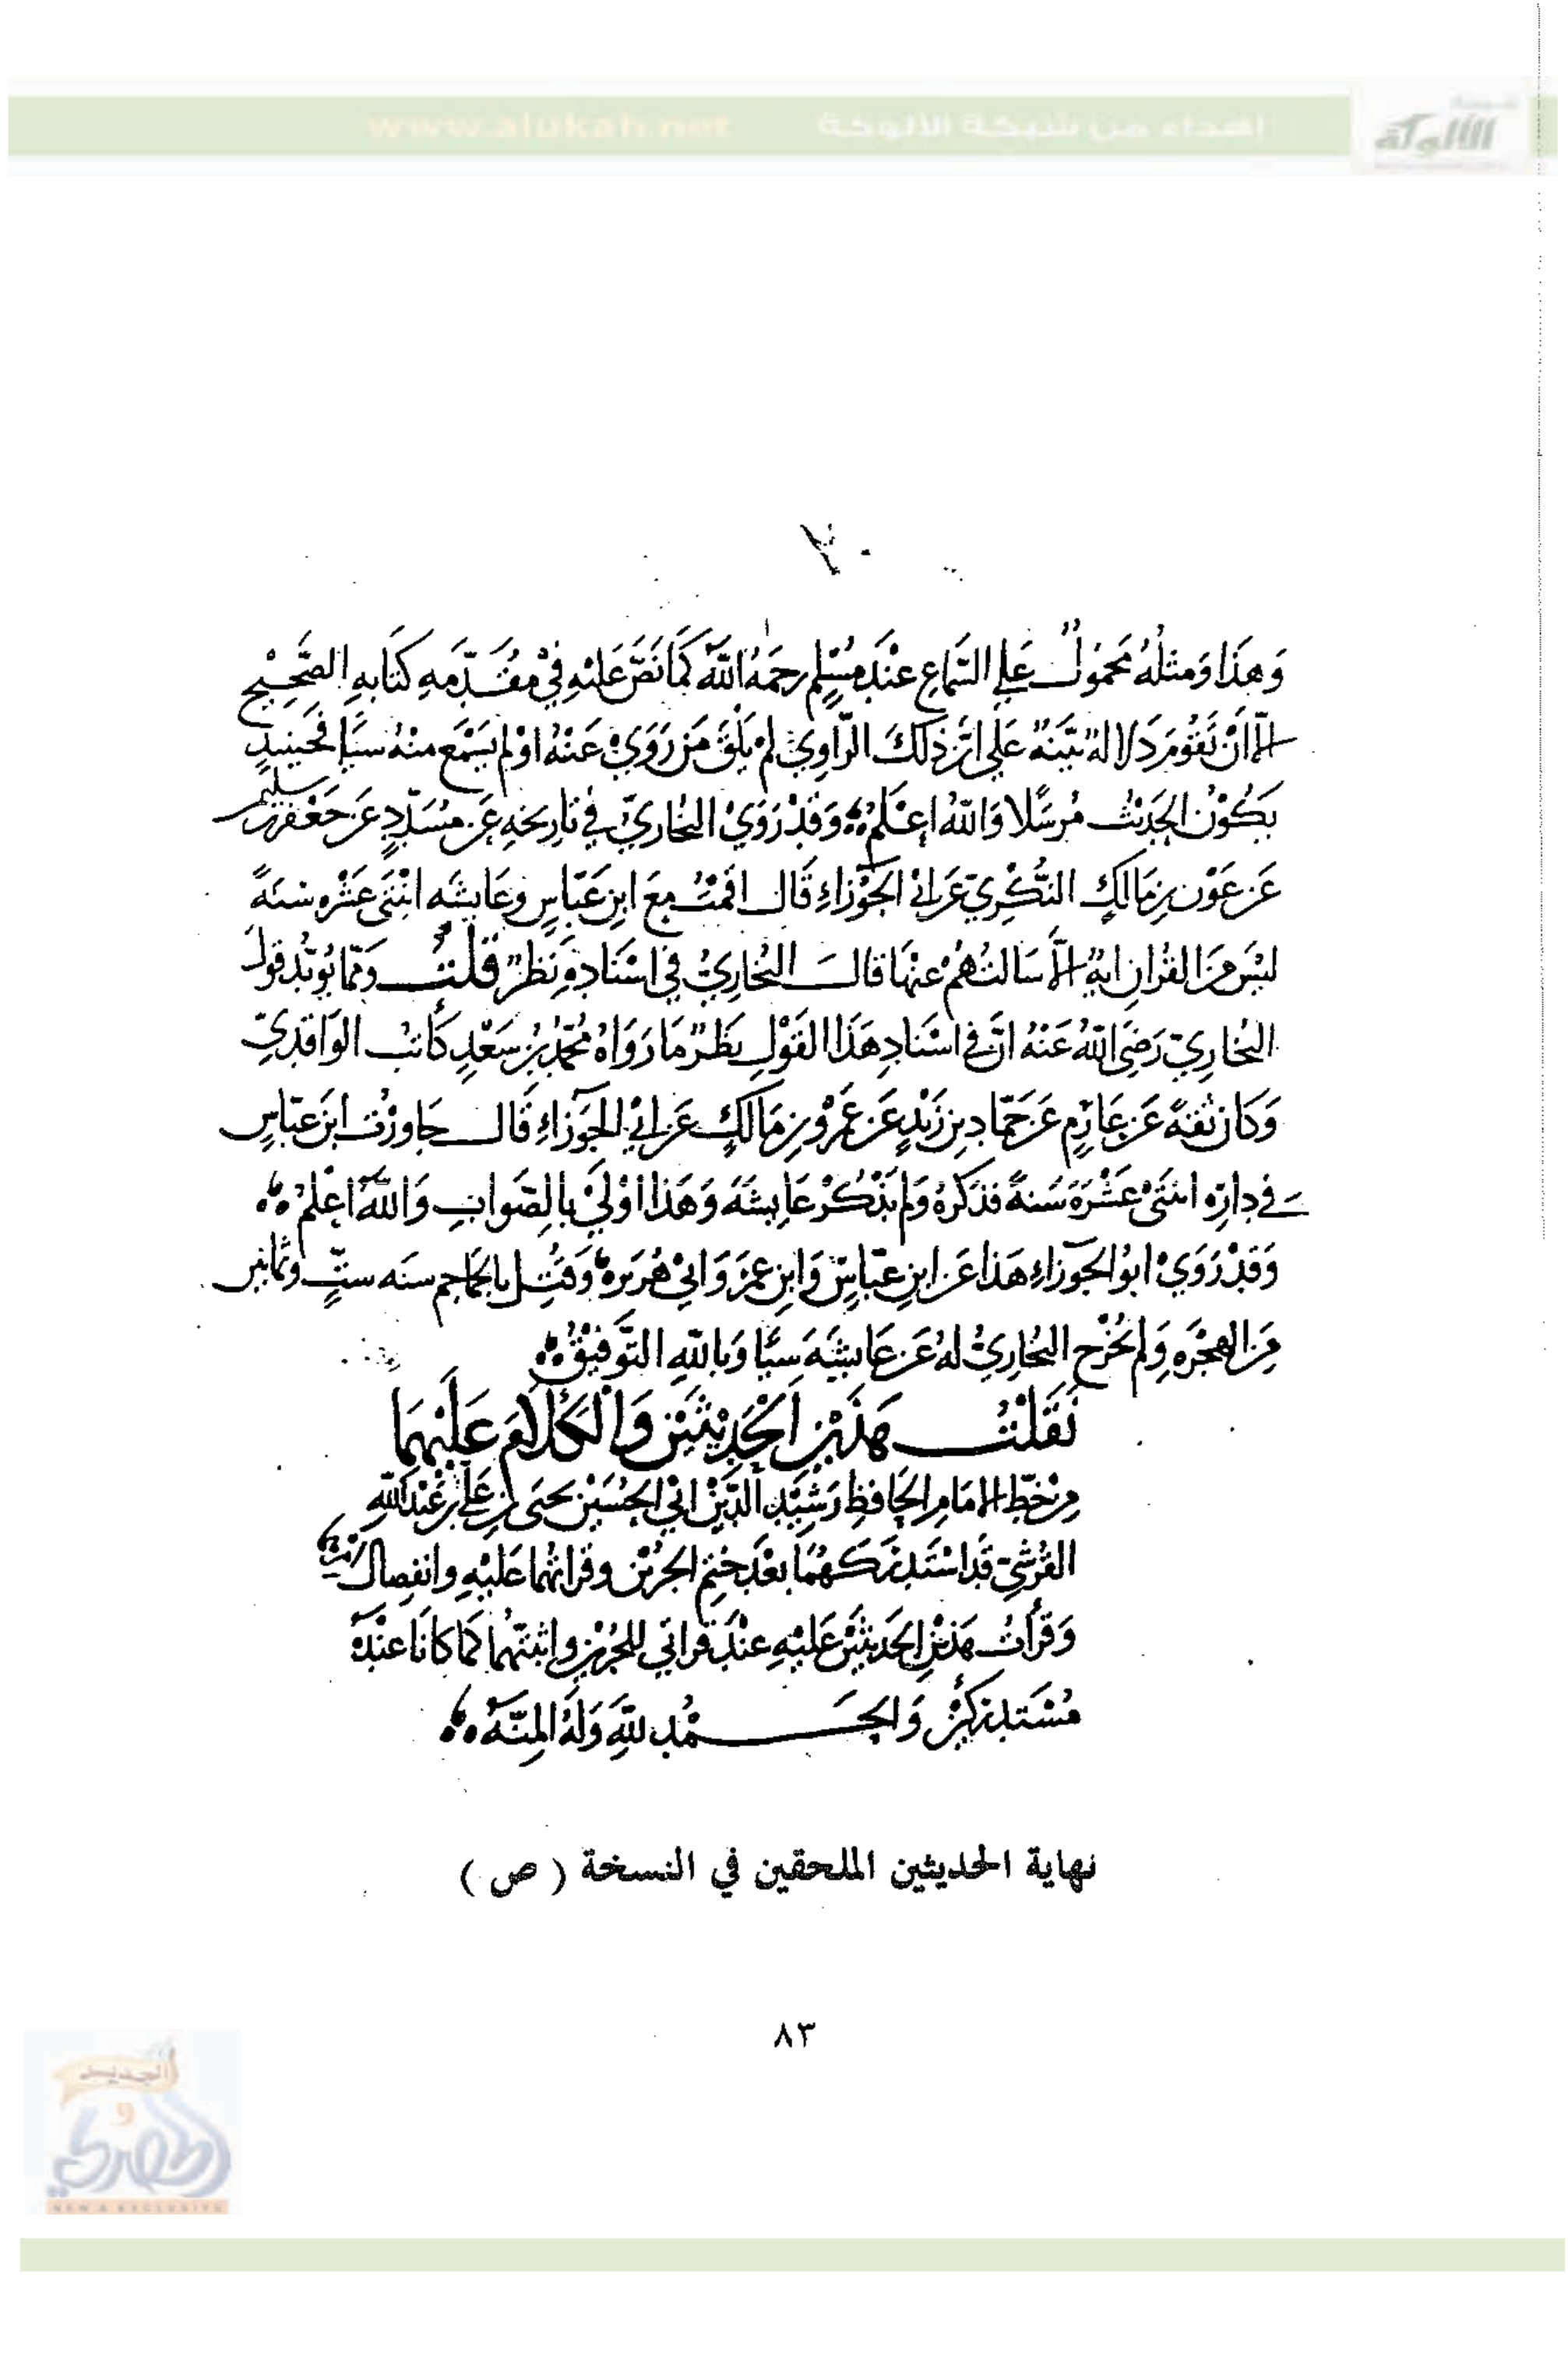 شبكة
الألوكة
www.alukah.net إهداء من شبكة الألوكة
وَهَذا وَمثلُهُ مَحمُولٌ عَلى السَّماعِ عنْدَ مُسْلِمٍ رحمَهُ اللهُ كَمَا نَصَّ عَليْهِ فِي مُقَدّمَهِ كتَابهِ الصَّحِيْحِ
إلاَّ أنْ تَقُومَ دَلالهٌ بيّنهٌ عَلى انَّ ذلكَ الرَّاوِيْ لمْ يَلْقَ مَن رَوَى عَنْهُ اوْ لم يَسْمَع منْهُ سيًا فحينيذٍ
يَكُوْنُ الحَديْثُ مُرسَلًا وَاللهُ اعْلمُ وَقدْ رَوَى البُخاريّ في تاريخهِ عَن مسَدّدٍ عَن جَعْفر بن سليمن
عَن عَوْن بن مَالكٍ النُّكْريّ عَن ابي الجَوْزاءِ قَال اقمْتُ مَعَ ابنِ عَبّاسٍ وعَايشه اثنتَى عشْره سَنهً
ليْسَ مِنَ القُرانِ ايةٌ إلاَّ سَالتُهُمْ عنهَا قالَ البُخَارِيُّ في اسْنَادهِ نظرٌ قلْتُ وممّا يُويّد قولَ
البُخَاريّ رَضيَ اللهُ عَنْهُ انَّ في اسْنادِ هَذا القَوْلِ نظَرٌ مَا رَوَاهُ مُحمّدُ بنُ سَعْدٍ كاتبُ الوَاقديّ
وَكانَ ثقهً عَن عَارِمٍ عَن حَمّادِ بن زَيْدٍ عَن عَمْرو بن مَالكٍ عَن ابي الجَوْزاءِ قَال جَاورْتُ ابنَ عبّاسٍ
في دارِه اثنتَى عَشْرَةَ سَنهً فذكَرهُ وَلم يَذْكُرْ عَايشَهَ وَهَذا اوْلَى بالصَّوابِ وَاللهُ اعْلمُ
وَقدْ رَوَى ابوُ الجَوزاءِ هَذا عَن ابنِ عبّاسٍ وَابنِ عمَرَ وَابي هُريْره وَقتُل بالجَماجم سنَه ستٍّ وثمانين
مِنَ الهجْرَه وَلم يُخرِّج البُخاريُّ لهُ عَن عَايشَهَ سيًا وَباللهِ التَّوفيْقُ
نَقَلْتُ هَذَيْنِ الحَدِيْثَيْنِ وَالكَلَامَ عَلَيْهِمَا
مِنْ خطِّ الإمَامِ الحَافِظِ رَشيْدِ الدّيْن ابي الحُسَيْن يحيَى بن عَليّ بن عَبْد اللهِ
القُرَشيّ قَد اسْتَدْركَهُمَا بعْدَ ختمِ الجُزئين وقراتهُما عَليْهِ وانفصال
وَقَرأتُ هَذيْنِ الحَديثَيْنِ عَليْهِ عنْدَ قراتي للجُزئين واثبتّهُمَا كمَا كانَا عنْدَهُ
مُسْتَدْركَيْن وَالحَمْدُ للهِ وَلهُ المِنّهُ
نهاية الحديثين الملحقين في النسخة ( ص )
٨٣
الجديد
و
الحصري
NEW & EXCLUSIVE